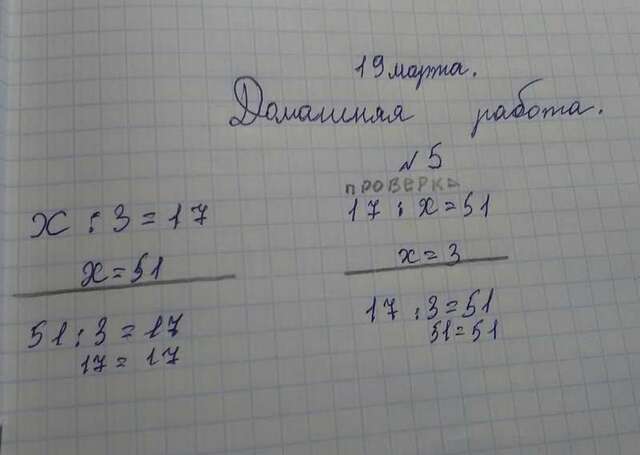 19 марта.
Домашняя работа.
№ 5
проверка
х : 3 = 17
х = 51
51 : 3 = 17
17 = 17
17 : х = 51
х = 3
17 : 3 = 51
51 = 51